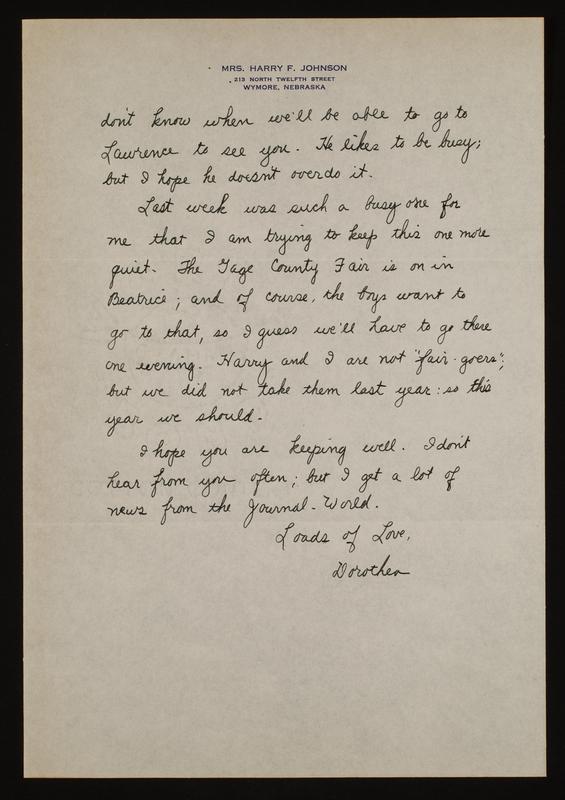 MRS. HARRY F. JOHNSON
213 NORTH TWELFTH STREET
WYMORE, NEBRASKA
don't know when we'll be able to go to
Lawrence to see you. He likes to be busy;
but I hope he doesn't overdo it.
Last week was such a busy one for
me that I am trying to keep this one more
quiet. The Gage County Fair is on in
Beatrice; and of course, the boys want to
go to that, so I guess we'll have to go there
one evening. Harry and I are not "fair-goers";
but we did not take them last year: so this
year we should.
I hope you are keeping well. I don't
hear from you often; but I get a lot of
news from the Journal-World.
Loads of Love,
Dorothea